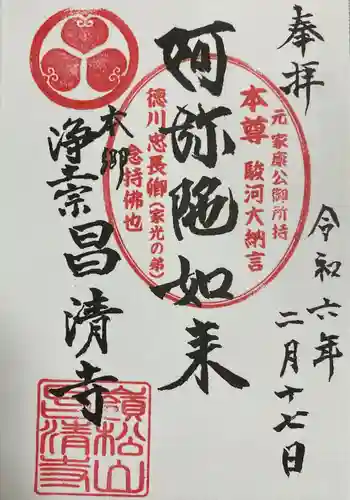 奉拝
令和六年
二月十七日
元 家康公御所持
本尊 駿河大納言
阿弥陀如来
徳川忠長卿(家光の弟)
念持佛也
本郷
浄土宗昌清寺
嶺松山
昌清寺